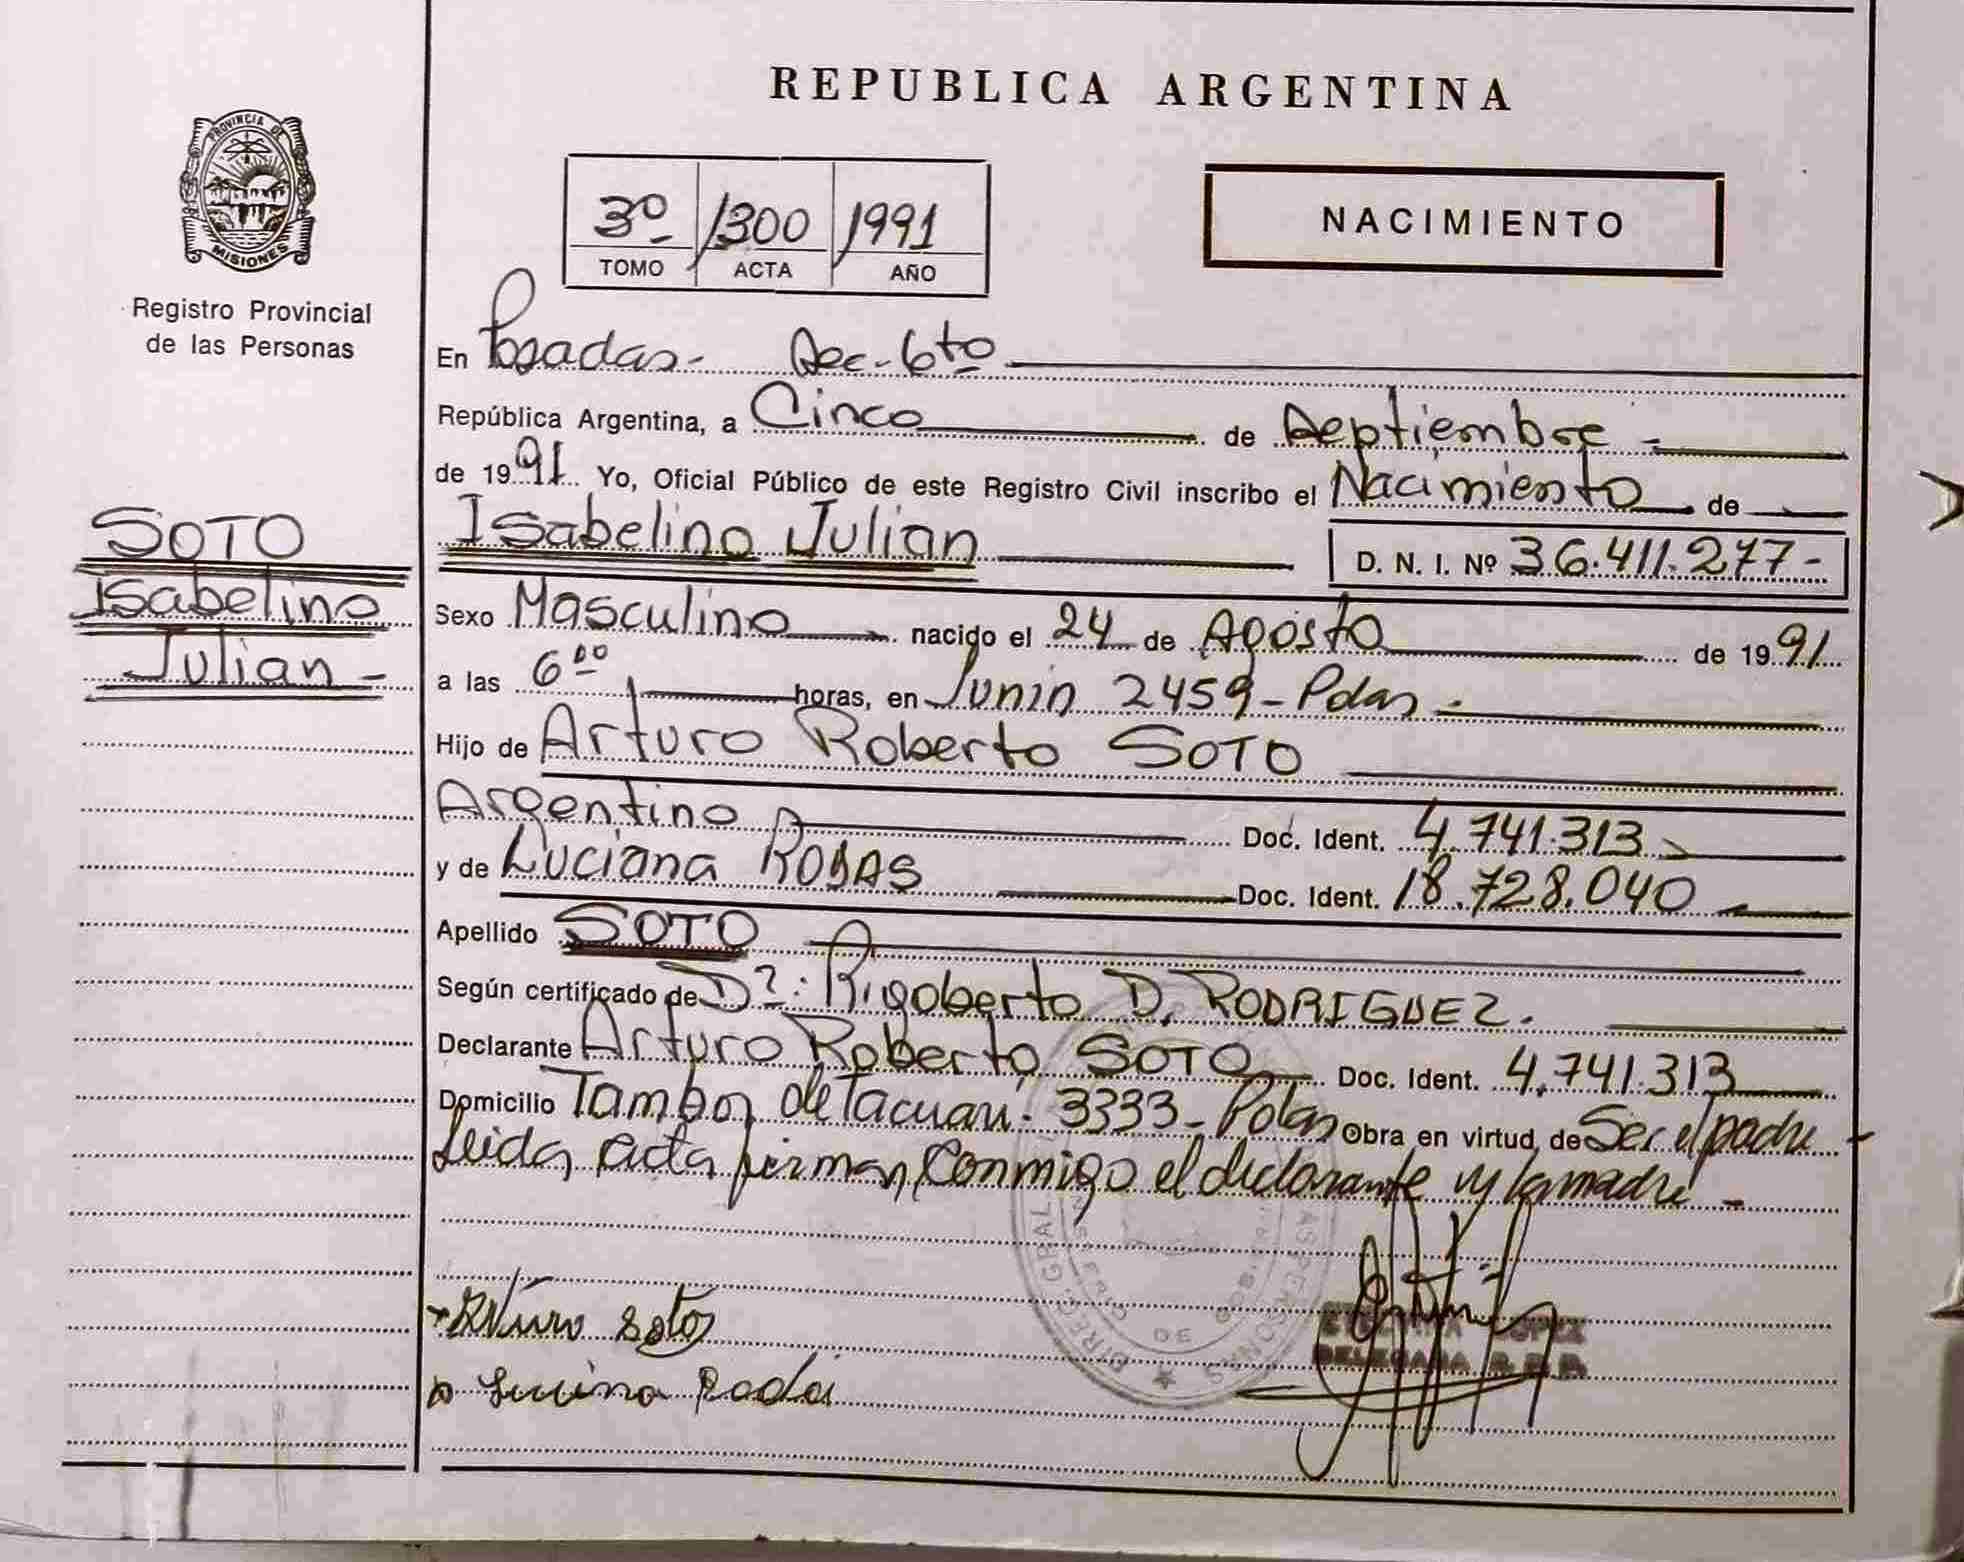 REPUBLICA ARGENTINA
PROVINCIA DE
MISIONES
Registro Provincial
de las Personas
3º 1300 1991
TOMO ACTA AÑO
NACIMIENTO
En Posadas - Sec - 6to
República Argentina, a Cinco de Septiembre
de 1991 Yo, Oficial Público de este Registro Civil inscribo el Nacimiento de
SOTO
Isabelino
Julian -
Isabelino Julian D. N. I. Nº 36.411.277 -
Sexo Masculino nacido el 24 de Agosto de 1991
a las 6 00 horas, en Junin 2459 - Pdas -
Hijo de Arturo Roberto SOTO
Argentino Doc. Ident. 4.741.313
y de Luciana Doc. Ident. 18.728.040
Apellido SOTO
Según certificado de Dr: Rigoberto D. RODRIGUEZ.
Declarante Arturo Roberto SOTO Doc. Ident. 4.741.313
Domicilio Tambor de Tacuari - 3333 - Pdas Obra en virtud de Ser el padre -
Leida acta firman conmigo el declarante y la madre -
Arturo Soto
LOPEZ
DELEGADA R.P.P.